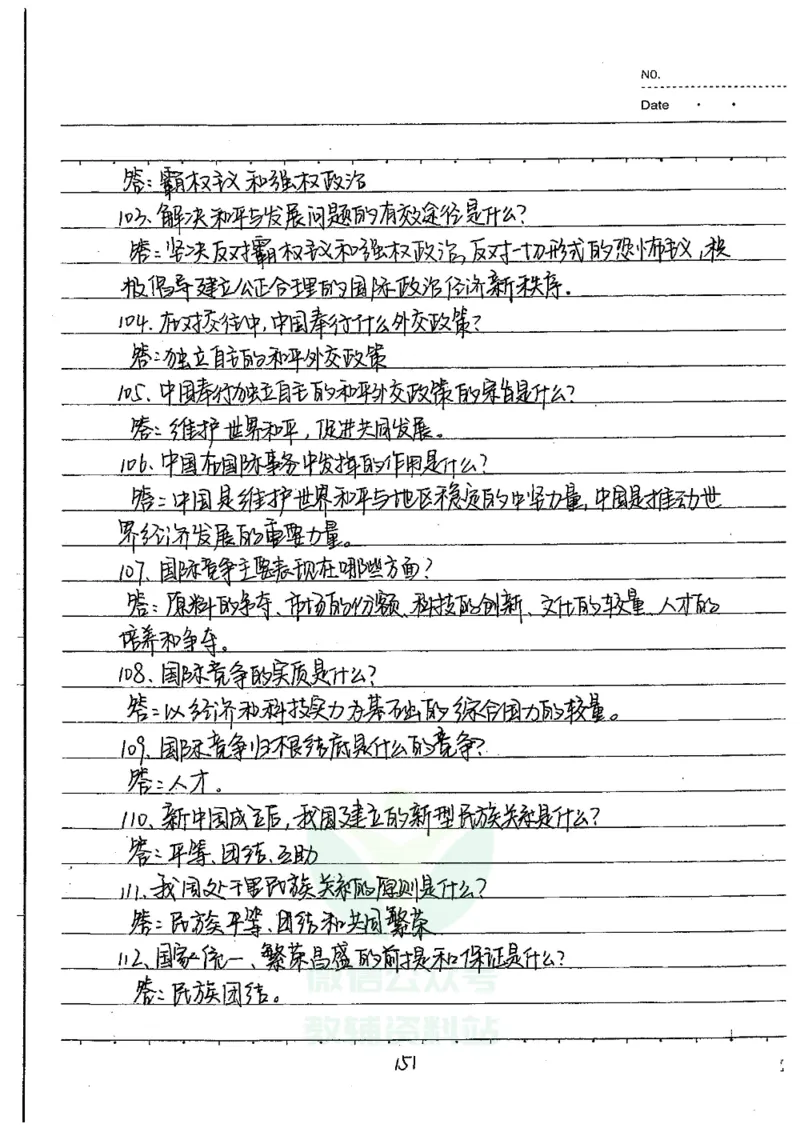 NO.
Date
答:霸权主义和强权政治
103、解决和平与发展问题的有效途径是什么?
答:坚决反对霸权主义和强权政治,反对一切形式的恐怖主义,积
极倡导建立公正合理的国际政治经济新秩序。
104、在对交往中,中国奉行什么外交政策?
答:独立自主的和平外交政策
105、中国奉行独立自主的和平外交政策的宗旨是什么?
答:维护世界和平,促进共同发展。
106、中国在国际事务中发挥的作用是什么?
答:中国是维护世界和平与地区稳定的中坚力量,中国是推动世
界经济发展的重要力量。
107、国际竞争主要表现在哪些方面?
答:原料的争夺、市场的份额、科技的创新、文化的较量、人才的
培养和争夺。
108、国际竞争的实质是什么?
答:以经济和科技实力为基础的综合国力的较量。
109、国际竞争归根结底是什么的竞争?
答:人才。
110、新中国成立后,我国建立的新型民族关系是什么?
答:平等、团结、互助
111、我国处理民族关系的原则是什么?
答:民族平等、团结和共同繁荣
112、国家统一、繁荣昌盛的前提和保证是什么?
答:民族团结。
微信公众号
教辅资料站
151